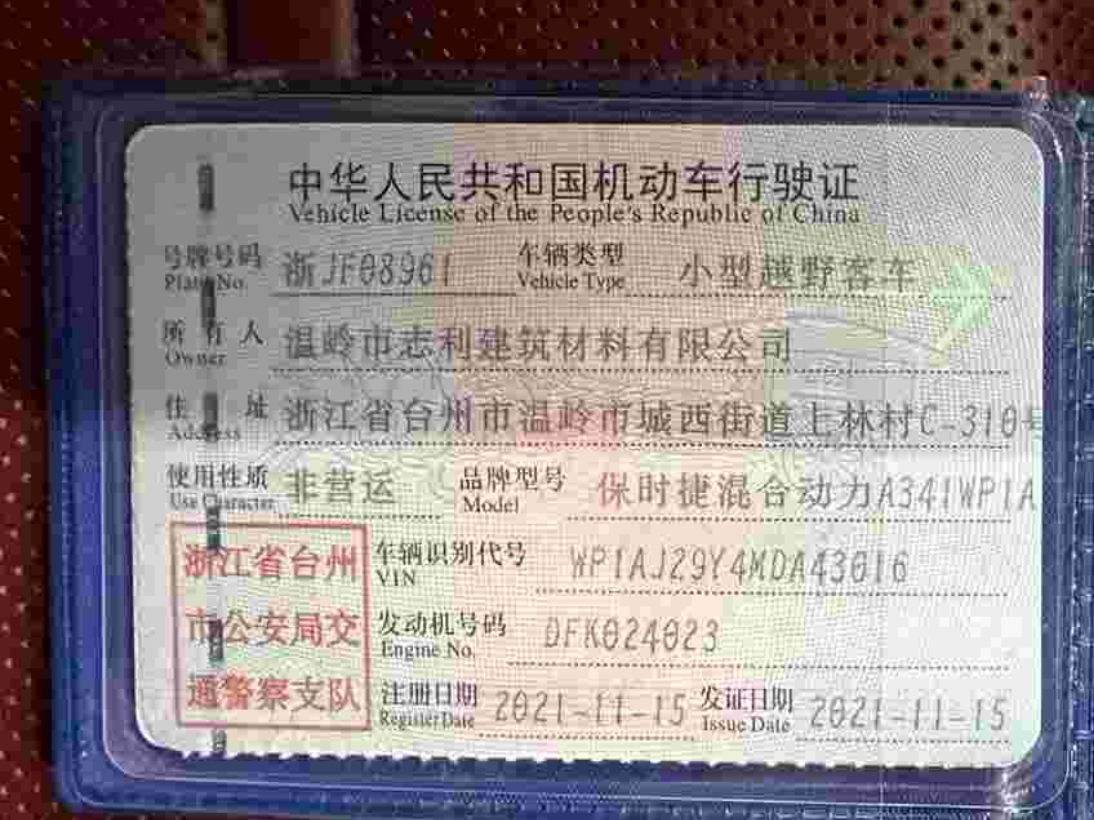 中华人民共和国机动车行驶证
Vehicle License of the People's Republic of China
号牌号码 浙JF08961 车辆类型 小型越野客车
Plate No. Vehicle Type
所有人 温岭市志利建筑材料有限公司
Owner
住址 浙江省台州市温岭市城西街道上林村C-310号
Address
使用性质 非营运 品牌型号 保时捷混合动力A341WP1A
Use Character Model
浙江省台州 车辆识别代号 WP1AJ29Y4MDA43016
VIN
市公安局交 发动机号码 DFK024023
Engine No.
通警察支队 注册日期 2021-11-15 发证日期 2021-11-15
Register Date Issue Date